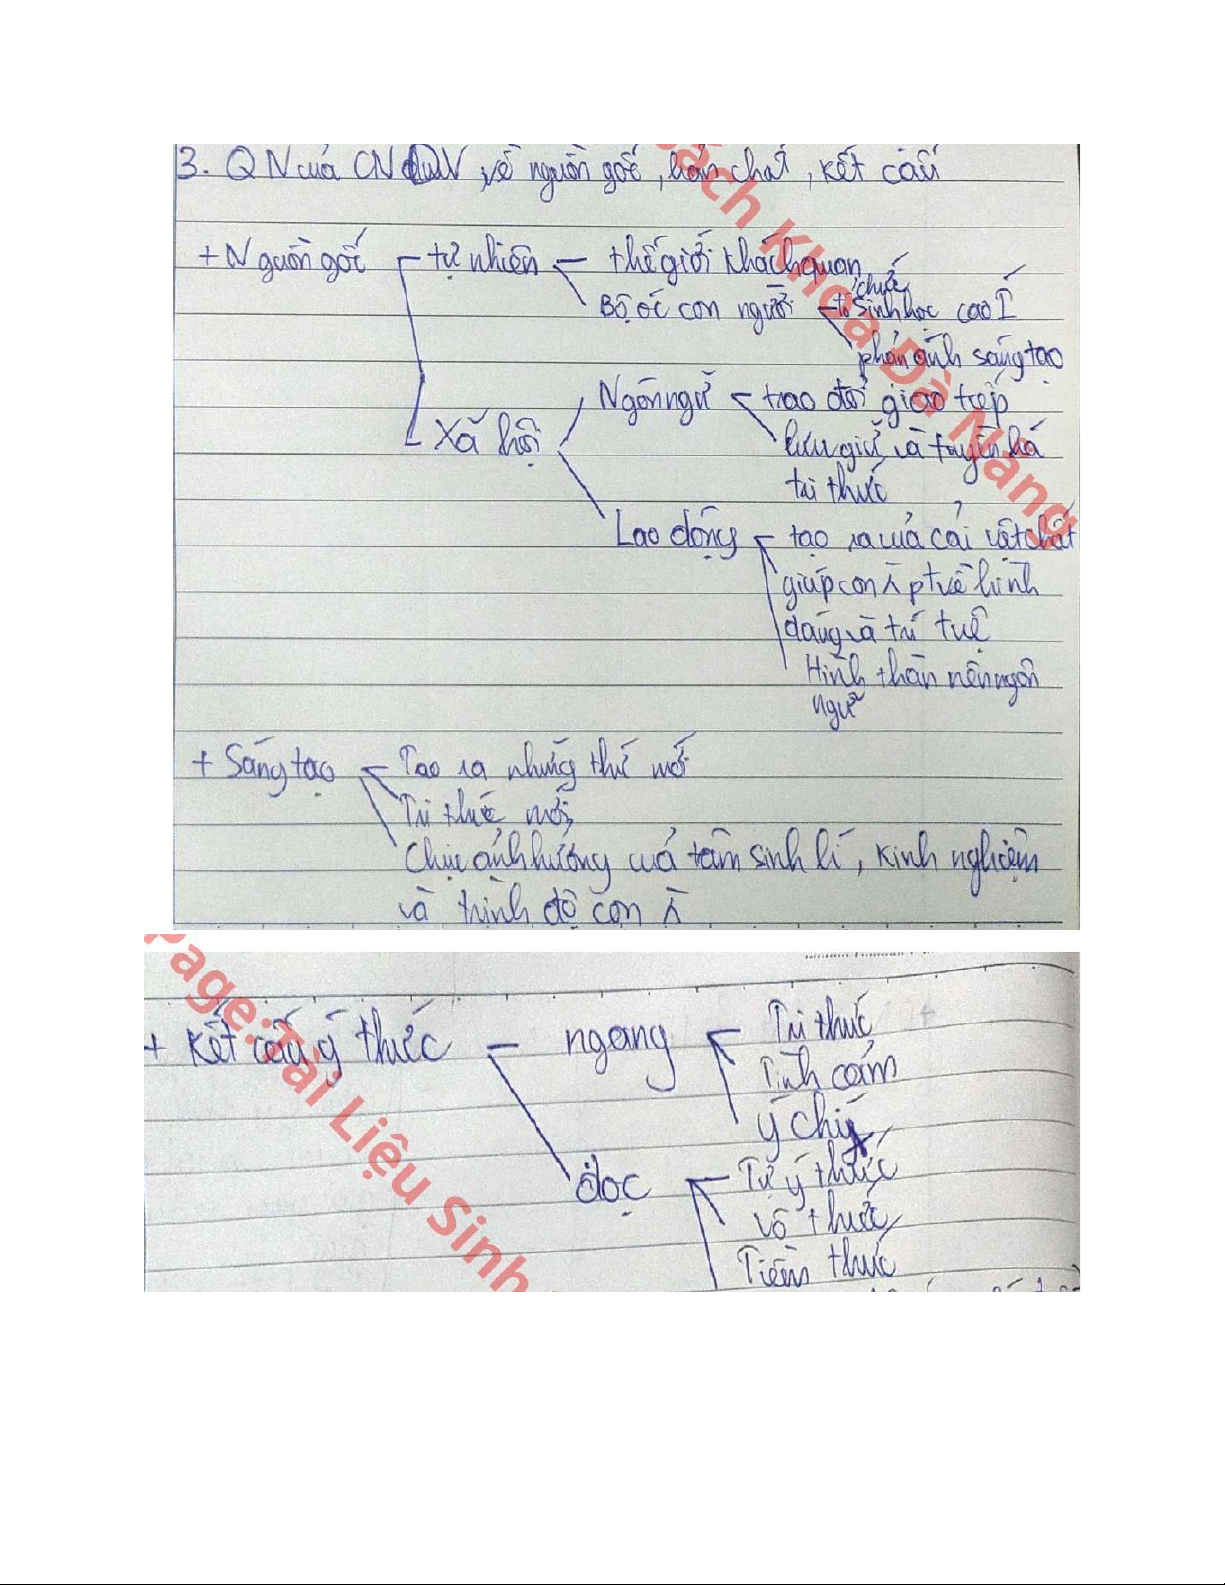 3. QN của CNDVBC về nguồn gốc, bản chất, kết cấu
+ Nguồn gốc tự nhiên thế giới khách quan
Bộ óc con người tổ chức sinh học cao I
phản ánh sáng tạo
Xã hội Ngôn ngữ trao đổi giao tiếp
lưu giữ và truyền bá
tri thức
Lao động tạo ra của cải vật chất
giúp con ng pt về hình
dáng và trí tuệ
Hình thàn nên ngôn
ngữ
+ Sáng tạo Tạo ra những thứ mới
Tri thức mới
Chịu ảnh hưởng của tâm sinh lí, kinh nghiệm
và trình độ con
+ Kết cấu ý thức ngang Tri thức
Tình cảm
ý chí
dọc Tự ý thức
vô thức
Tiềm thức
Page: Tài Liệu Sinh
Bách Khoa Đà Nẵng